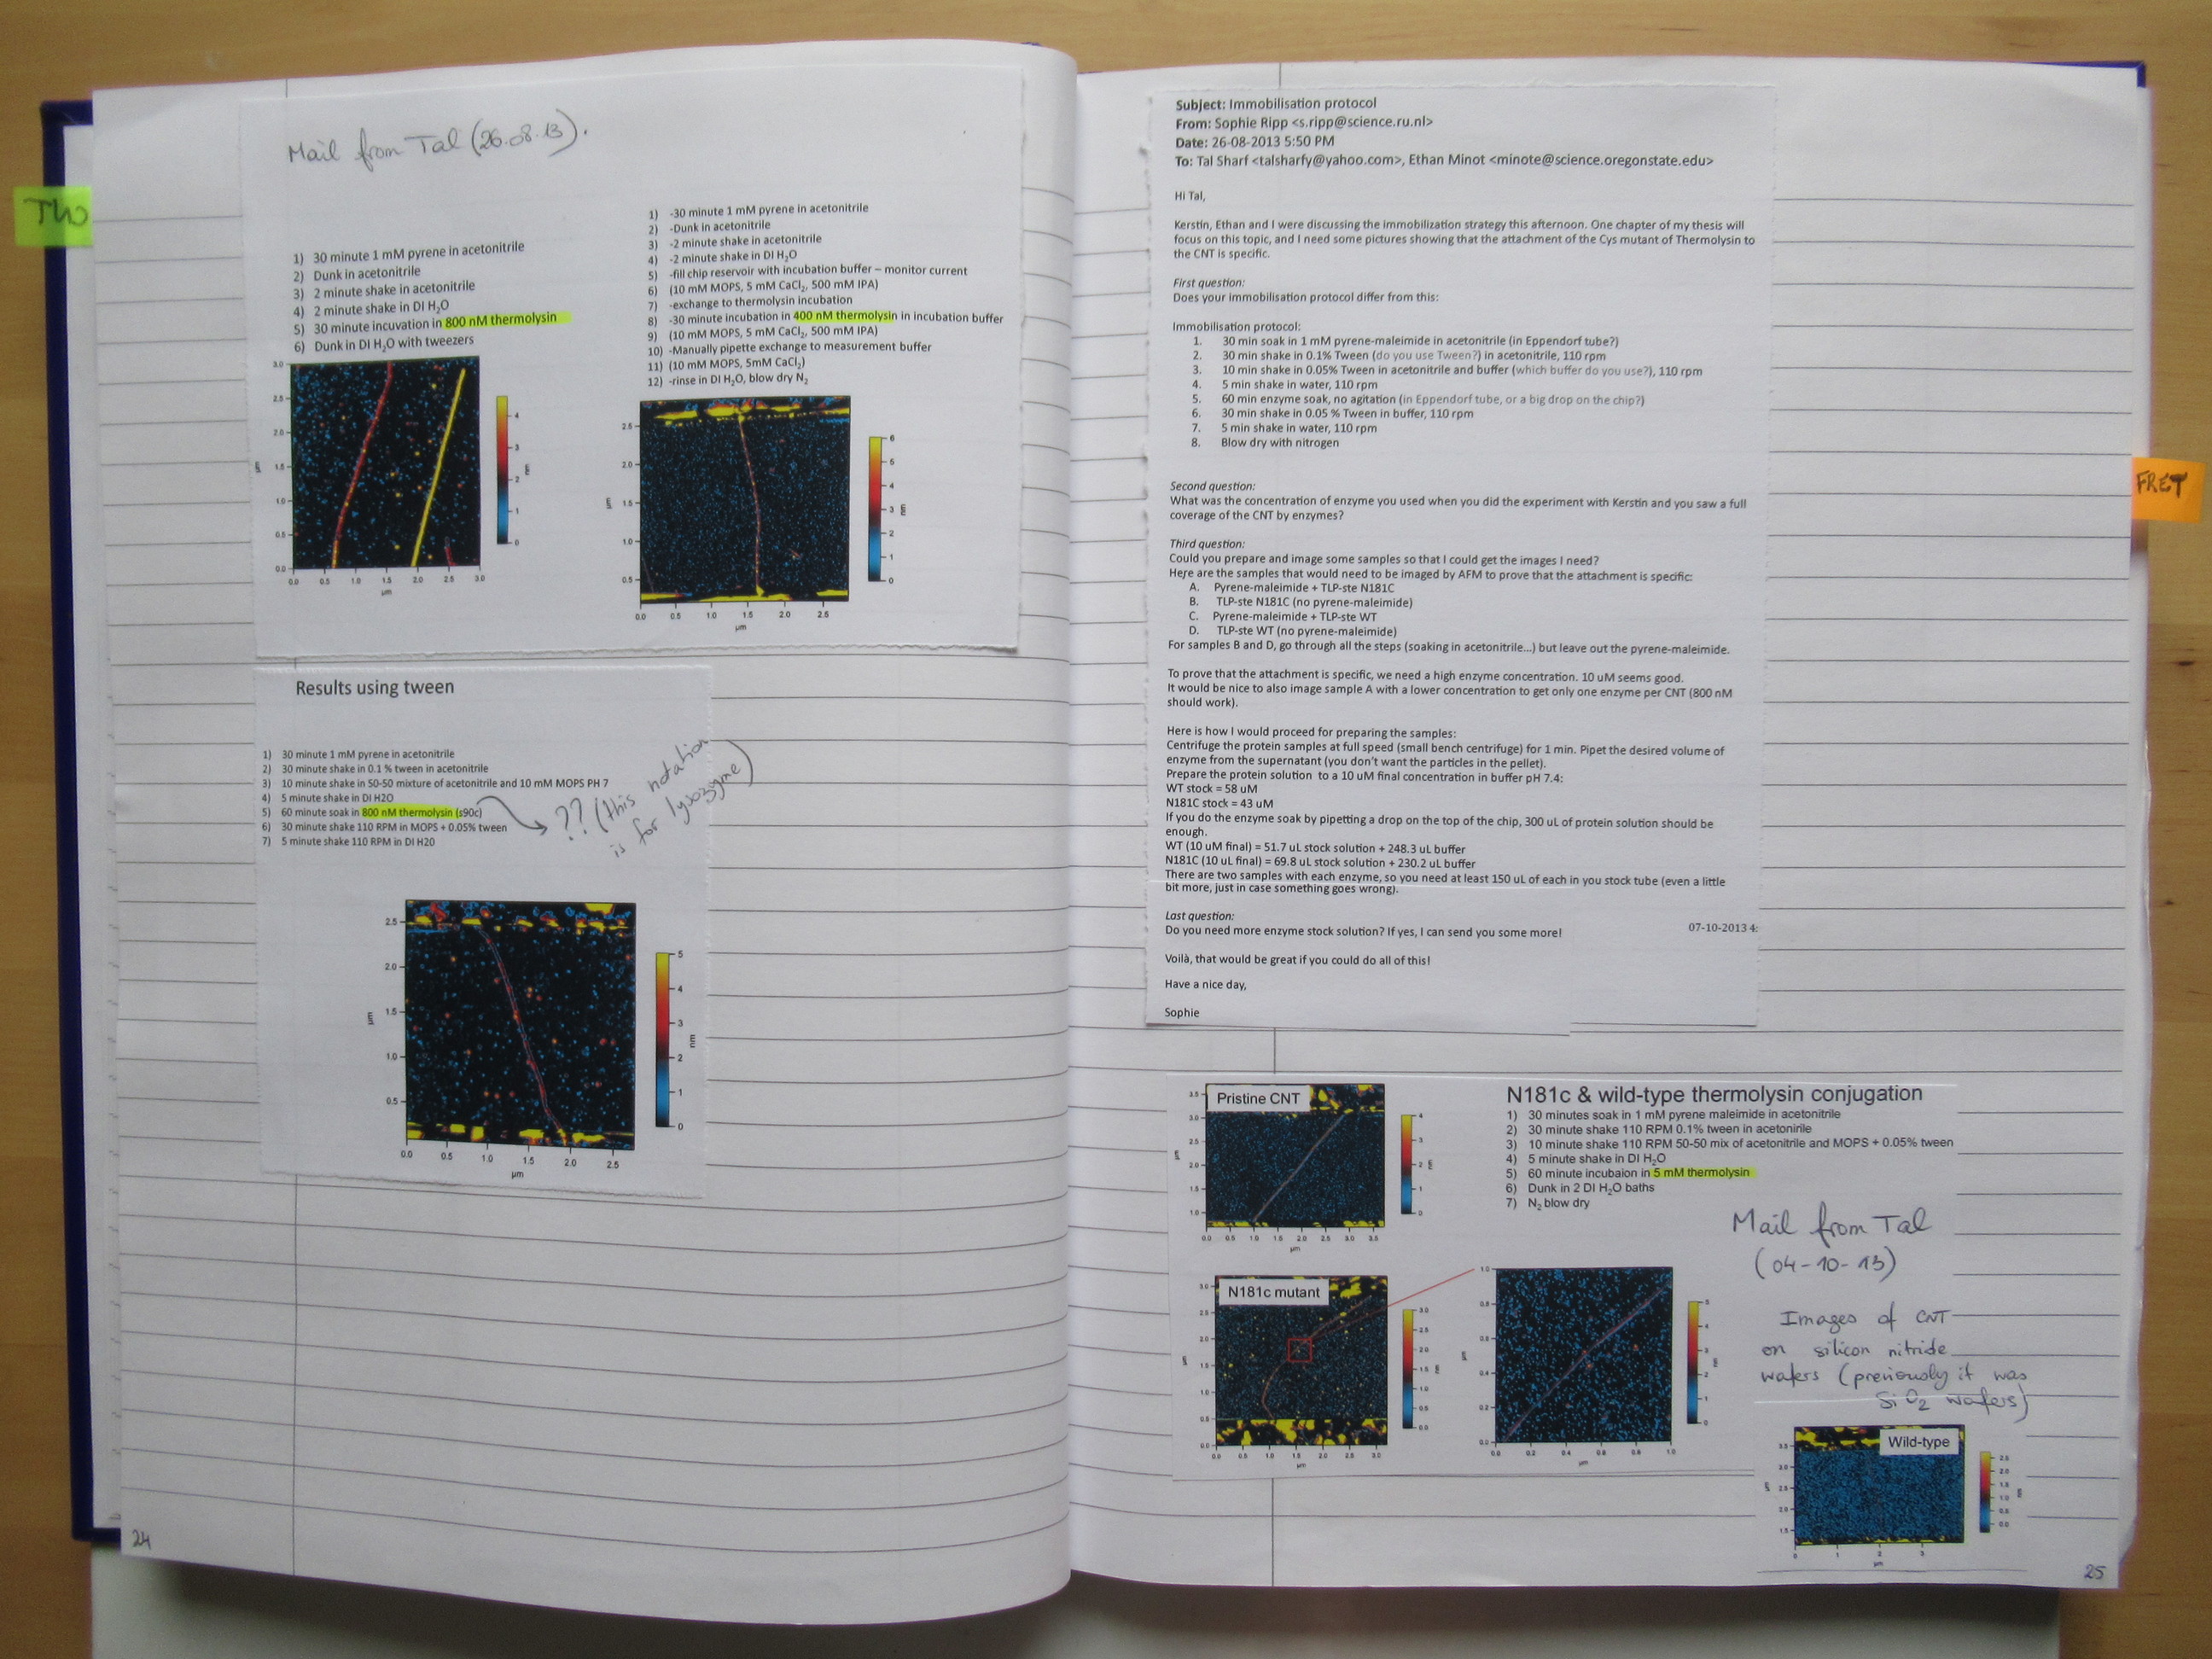 TW
Mail from Tal (26.08.13).
1) 30 minute 1 mM pyrene in acetonitrile
2) Dunk in acetonitrile
3) 2 minute shake in acetonitrile
4) 2 minute shake in DI H₂O
5) 30 minute incuvation in 800 nM thermolysin
6) Dunk in DI H₂O with tweezers
1) -30 minute 1 mM pyrene in acetonitrile
2) -Dunk in acetonitrile
3) -2 minute shake in acetonitrile
4) -2 minute shake in DI H₂O
5) -fill chip reservoir with incubation buffer – monitor current
6) (10 mM MOPS, 5 mM CaCl₂, 500 mM IPA)
7) -exchange to thermolysin incubation
8) -30 minute incubation in 400 nM thermolysin in incubation buffer
9) (10 mM MOPS, 5 mM CaCl₂, 500 mM IPA)
10) -Manually pipette exchange to measurement buffer
11) (10 mM MOPS, 5mM CaCl₂)
12) -rinse in DI H₂O, blow dry N₂
3.0
2.5
2.0
1.5
1.0
0.5
0.0
µm
0.0 0.5 1.0 1.5 2.0 2.5 3.0
µm
4
3
2
1
0
nm
2.5
2.0
1.5
1.0
0.5
µm
0.0 0.5 1.0 1.5 2.0 2.5
µm
6
5
4
3
2
1
0
nm
Results using tween
1) 30 minute 1 mM pyrene in acetonitrile
2) 30 minute shake in 0.1 % tween in acetonitrile
3) 10 minute shake in 50-50 mixture of acetonitrile and 10 mM MOPS PH 7
4) 5 minute shake in DI H2O
5) 60 minute soak in 800 nM thermolysin (s90c)
6) 30 minute shake 110 RPM in MOPS + 0.05% tween
7) 5 minute shake 110 RPM in DI H20
?? (this notation
is for lysozyme)
2.5
2.0
1.5
1.0
0.5
µm
0.0 0.5 1.0 1.5 2.0 2.5
µm
5
4
3
2
1
0
nm
24
Subject: Immobilisation protocol
From: Sophie Ripp <s.ripp@science.ru.nl>
Date: 26-08-2013 5:50 PM
To: Tal Sharf <talsharfy@yahoo.com>, Ethan Minot <minote@science.oregonstate.edu>
Hi Tal,
Kerstin, Ethan and I were discussing the immobilization strategy this afternoon. One chapter of my thesis will
focus on this topic, and I need some pictures showing that the attachment of the Cys mutant of Thermolysin to
the CNT is specific.
First question:
Does your immobilisation protocol differ from this:
Immobilisation protocol:
1. 30 min soak in 1 mM pyrene-maleimide in acetonitrile (in Eppendorf tube?)
2. 30 min shake in 0.1% Tween (do you use Tween?) in acetonitrile, 110 rpm
3. 10 min shake in 0.05% Tween in acetonitrile and buffer (which buffer do you use?), 110 rpm
4. 5 min shake in water, 110 rpm
5. 60 min enzyme soak, no agitation (in Eppendorf tube, or a big drop on the chip?)
6. 30 min shake in 0.05 % Tween in buffer, 110 rpm
7. 5 min shake in water, 110 rpm
8. Blow dry with nitrogen
Second question:
What was the concentration of enzyme you used when you did the experiment with Kerstin and you saw a full
coverage of the CNT by enzymes?
Third question:
Could you prepare and image some samples so that I could get the images I need?
Here are the samples that would need to be imaged by AFM to prove that the attachment is specific:
A. Pyrene-maleimide + TLP-ste N181C
B. TLP-ste N181C (no pyrene-maleimide)
C. Pyrene-maleimide + TLP-ste WT
D. TLP-ste WT (no pyrene-maleimide)
For samples B and D, go through all the steps (soaking in acetonitrile...) but leave out the pyrene-maleimide.
To prove that the attachment is specific, we need a high enzyme concentration. 10 uM seems good.
It would be nice to also image sample A with a lower concentration to get only one enzyme per CNT (800 nM
should work).
Here is how I would proceed for preparing the samples:
Centrifuge the protein samples at full speed (small bench centrifuge) for 1 min. Pipet the desired volume of
enzyme from the supernatant (you don't want the particles in the pellet).
Prepare the protein solution to a 10 uM final concentration in buffer pH 7.4:
WT stock = 58 uM
N181C stock = 43 uM
If you do the enzyme soak by pipetting a drop on the top of the chip, 300 uL of protein solution should be
enough.
WT (10 uM final) = 51.7 uL stock solution + 248.3 uL buffer
N181C (10 uL final) = 69.8 uL stock solution + 230.2 uL buffer
There are two samples with each enzyme, so you need at least 150 uL of each in you stock tube (even a little
bit more, just in case something goes wrong).
Last question:
Do you need more enzyme stock solution? If yes, I can send you some more!
07-10-2013 4:
Voilà, that would be great if you could do all of this!
Have a nice day,
Sophie
FRET
Pristine CNT
3.5
3.0
2.5
2.0
1.5
1.0
µm
0.0 0.5 1.0 1.5 2.0 2.5 3.0 3.5
µm
4
3
2
1
0
nm
N181c & wild-type thermolysin conjugation
1) 30 minutes soak in 1 mM pyrene maleimide in acetonitrile
2) 30 minute shake 110 RPM 0.1% tween in acetonirile
3) 10 minute shake 110 RPM 50-50 mix of acetonitrile and MOPS + 0.05% tween
4) 5 minute shake in DI H₂O
5) 60 minute incubaion in 5 mM thermolysin
6) Dunk in 2 DI H₂O baths
7) N₂ blow dry
Mail from Tal
(04-10-13)
Images of CNT
on silicon nitride
wafers (previously it was
SiO₂ wafers)
N181c mutant
3.0
2.5
2.0
1.5
1.0
0.5
0.0
µm
0.0 0.5 1.0 1.5 2.0 2.5 3.0
µm
3.0
2.5
2.0
1.5
1.0
0.5
0.0
nm
1.0
0.8
0.6
0.4
0.2
0.0
µm
0.0 0.2 0.4 0.6 0.8 1.0
µm
5
4
3
2
1
0
nm
Wild-type
3.5
3.0
2.5
2.0
1.5
µm
0 1 2 3
µm
2.5
2.0
1.5
1.0
0.5
0.0
nm
25